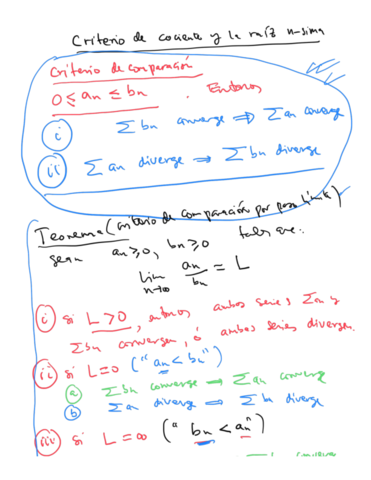 Criterio de cociente y la raíz n-sima
Criterio de comparación
0 ≤ an ≤ bn . Entonces
i Σ bn converge ⟹ Σ an converge
ii) Σ an diverge ⟹ Σ bn diverge
Teorema (criterio de comparación por paso límite)
sean an ≥ 0, bn ≥ 0 tales que:
lim n→∞ an/bn = L
i si L > 0, entonces ambas series Σ an y
Σ bn convergen, ó ambas series divergen.
ii si L = 0 ("an < bn")
a Σ bn converge ⟹ Σ an converge
b Σ an diverge ⟹ Σ bn diverge
iii) si L = ∞ ("bn < an")